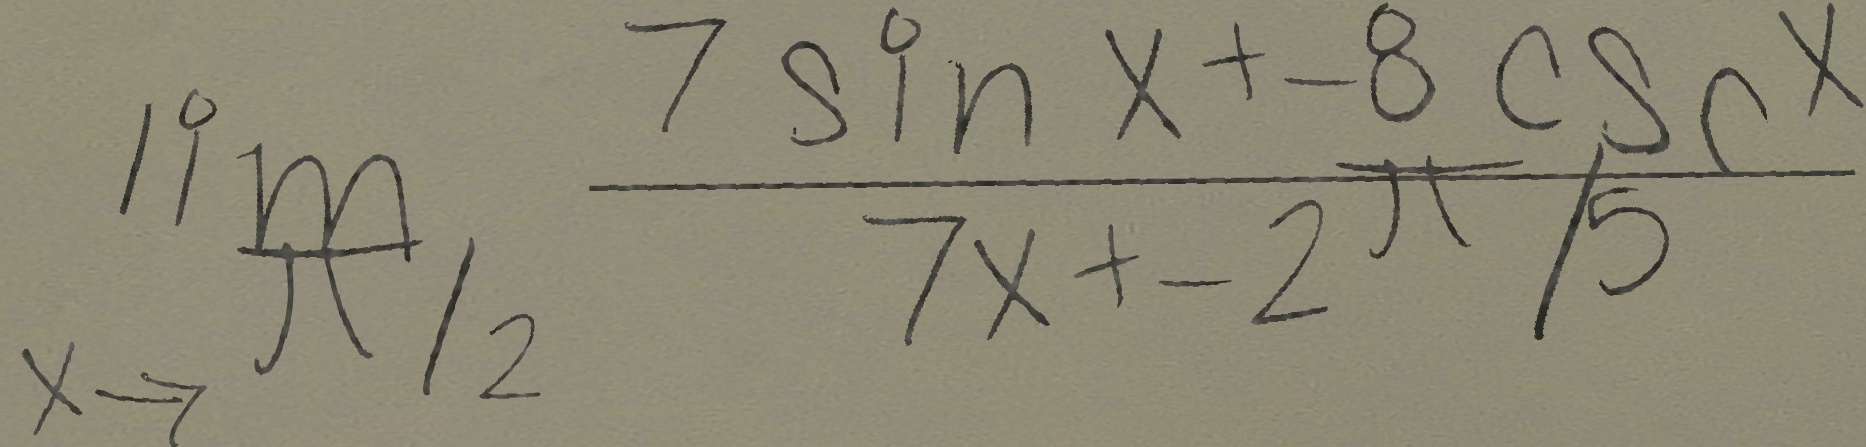 lim x→π/2 (7 sin x + -8 csc x) / (7x + -2π/5)